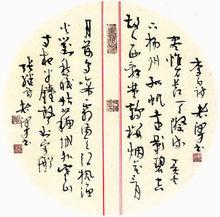 故人西辞黄鹤楼烟花三月
下扬州孤帆远影碧空尽
唯见长江天际流
李白诗
月落乌啼霜满天江枫渔
火对愁眠姑苏城外寒山
寺夜半钟声到客船
张继诗